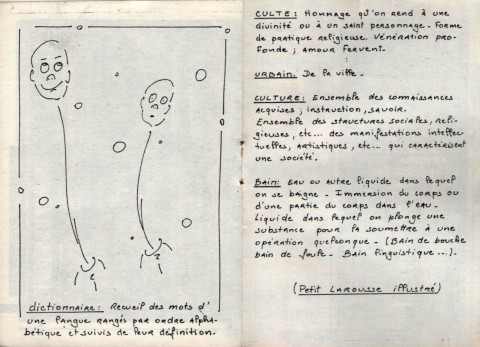 dictionnaire: Recueil des mots d'
une langue rangés par ordre alpha-
bétique et suivis de leur définition.
CULTE: Hommage qu'on rend à une
divinité ou à un saint personnage. Forme
de pratique religieuse. Vénération pro-
fonde; Amour fervent.
URBAIN: De la ville.
CULTURE: Ensemble des connaissances
acquises; instruction, savoir.
Ensemble des structures sociales, reli-
gieuses, etc... des manifestations intellec-
tuelles, artistiques, etc... qui caractérisent
une société.
Bain: Eau ou autre liquide dans lequel
on se baigne. Immersion du corps ou
d'une partie du corps dans l'eau.
Liquide dans lequel on plonge une
substance pour la soumettre à une
opération quelconque. (Bain de bouche
bain de foule. Bain linguistique...).
(Petit Larousse illustré)